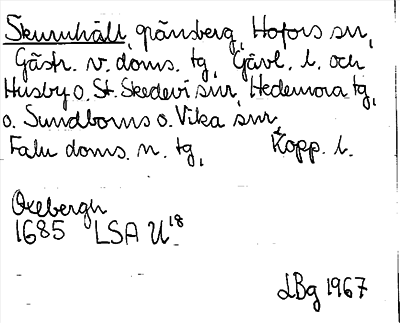 Skuruhäll, gränsberg, Hofors snr,
Gästr. v. doms. tg, Gävl. l. och
Husby o. St. Skedevi snr, Hedemora tg,
o. Sundborns o. Vika snr,
Falu doms. n. tg, Kopp. l.
Oxebergh
1685 LSA U18
LBg 1967